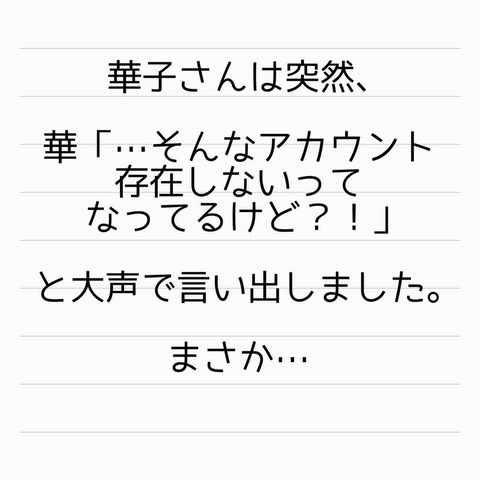 華子さんは突然、
華「…そんなアカウント
存在しないって
なってるけど？！」
と大声で言い出しました。
まさか…